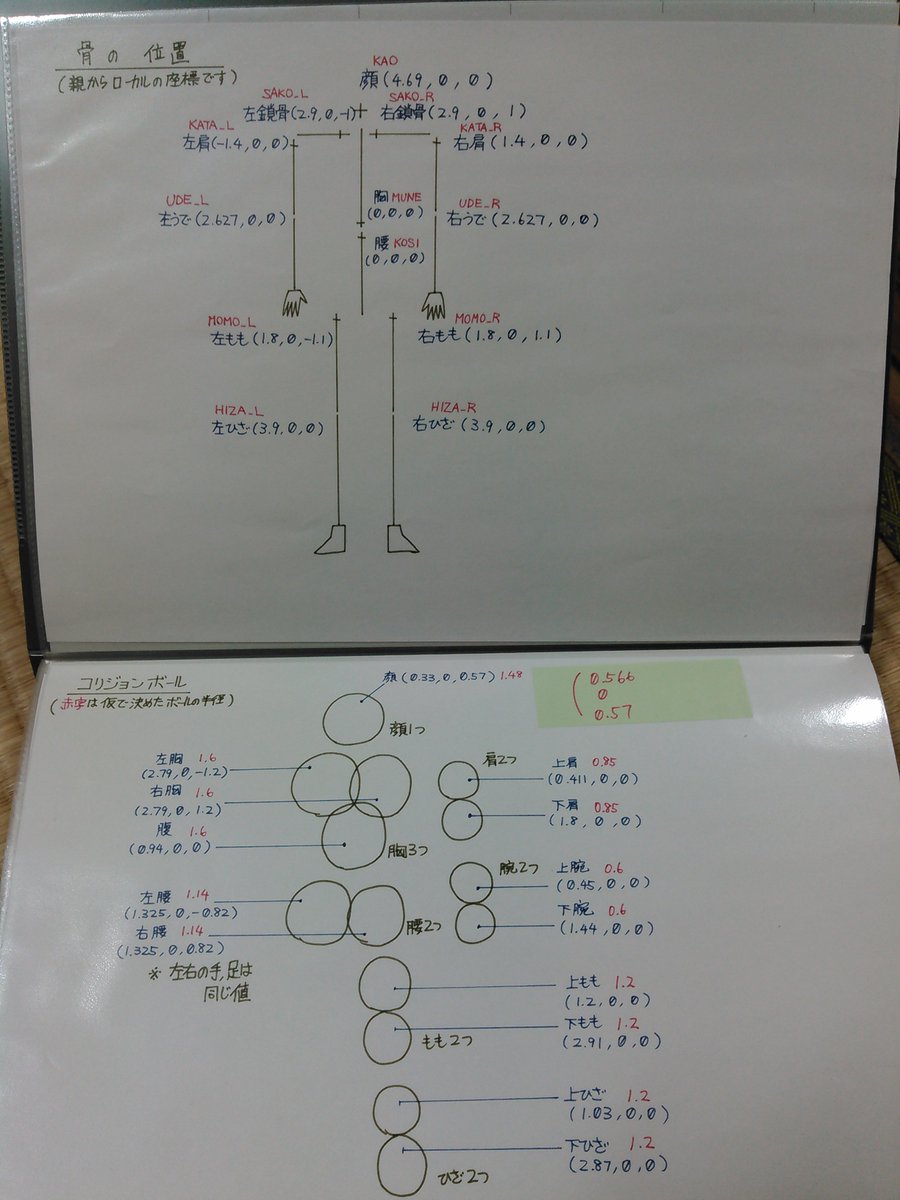 骨の位置
(親からローカルの座標です)
KAO
顔(4.69,0,0)
SAKO_L
左鎖骨(2.9,0,-1)
SAKO_R
右鎖骨(2.9,0,1)
KATA_L
左肩(-1.4,0,0)
KATA_R
右肩(1.4,0,0)
UDE_L
左うで(2.627,0,0)
胸 MUNE
(0,0,0)
UDE_R
右うで(2.627,0,0)
腰 KOSI
(0,0,0)
MOMO_L
左もも(1.8,0,-1.1)
MOMO_R
右もも(1.8,0,1.1)
HIZA_L
左ひざ(3.9,0,0)
HIZA_R
右ひざ(3.9,0,0)
コリジョンボール
(赤字は仮で決めたボールの半径)
顔(0.33,0,0.57) 1.48
0.566
0
0.57
顔1つ
左胸 1.6
(2.79,0,-1.2)
右胸 1.6
(2.79,0,1.2)
腹 1.6
(0.94,0,0)
胸3つ
肩2つ
上肩 0.85
(0.411,0,0)
下肩 0.85
(1.8,0,0)
腕2つ
上腕 0.6
(0.45,0,0)
下腕 0.6
(1.44,0,0)
左腰 1.14
(1.325,0,-0.82)
右腰 1.14
(1.325,0,0.82)
腰2つ
※ 左右の手,足は
同じ値
上もも 1.2
(1.2,0,0)
下もも 1.2
(2.91,0,0)
もも2つ
上ひざ 1.2
(1.03,0,0)
下ひざ 1.2
(2.87,0,0)
ひざ2つ